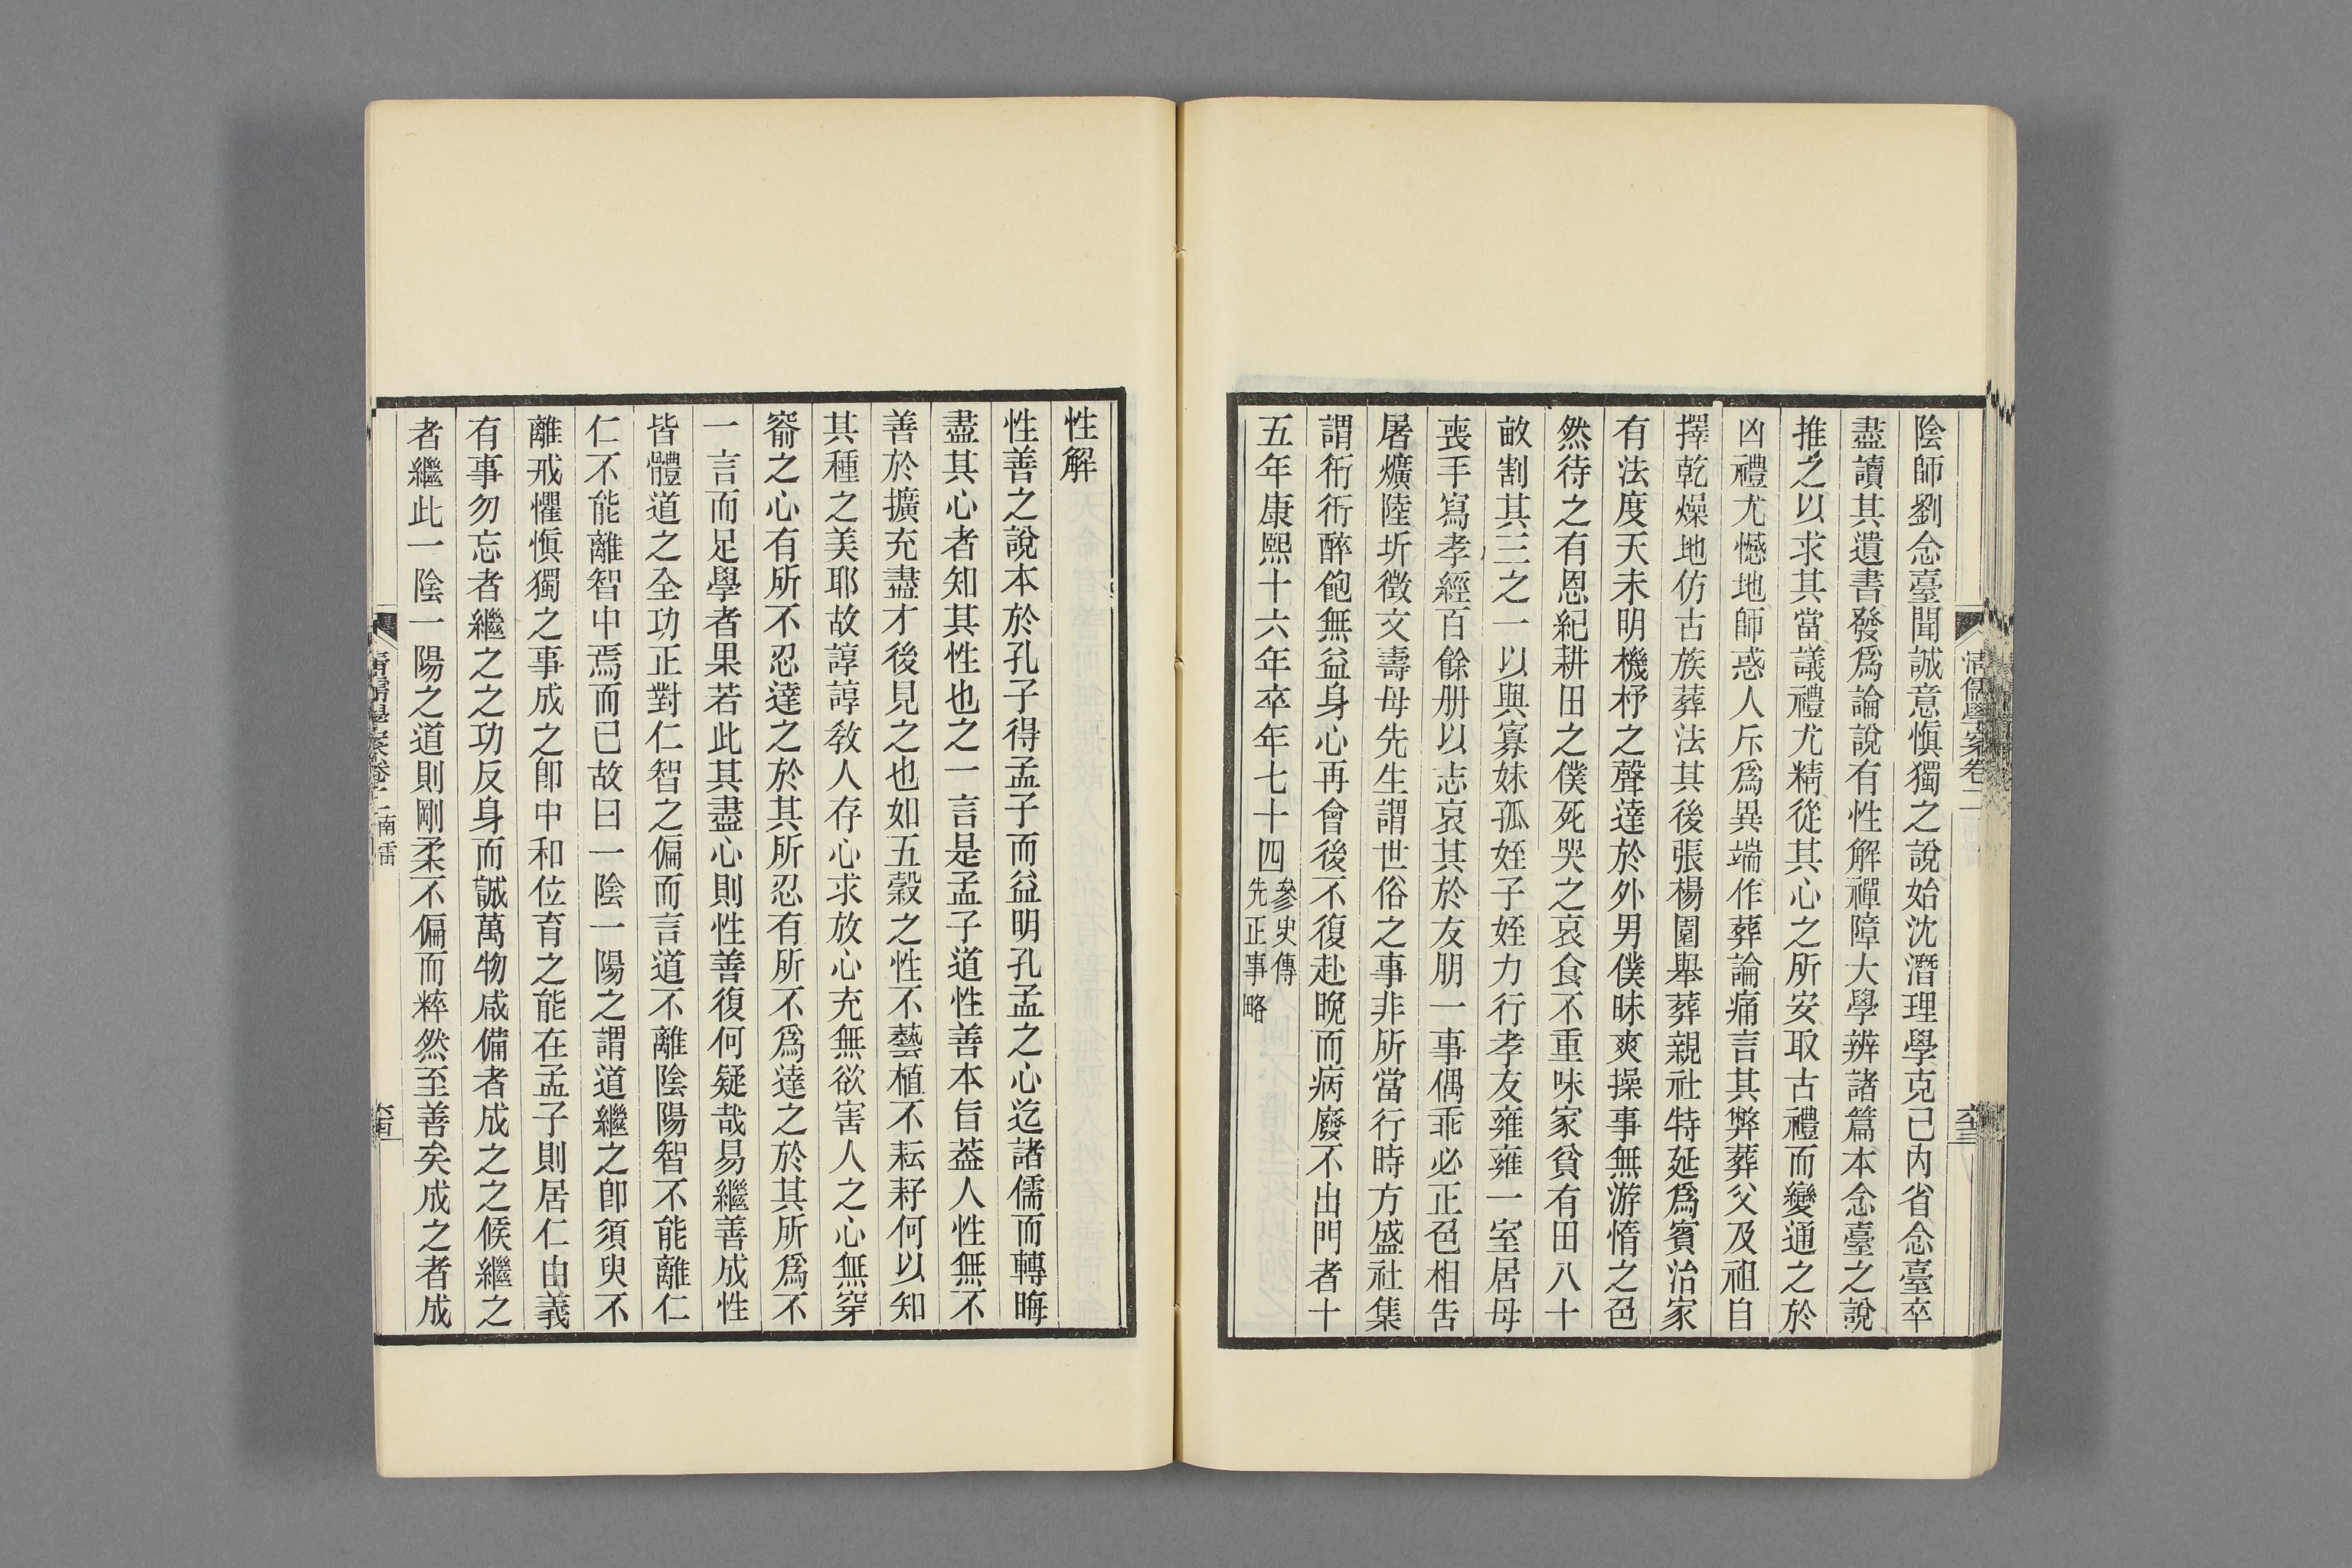 清儒學案卷二
陰師劉念臺聞誠意愼獨之說始沈潛理學克已內省念臺卒
盡讀其遺書發爲論說有性解禪障大學辨諸篇本念臺之說
推之以求其當議禮尤精從其心之所安取古禮而變通之於
凶禮尤憾地師惑人斥爲異端作葬論痛言其弊葬父及祖自
擇乾燥地仿古族葬法其後張楊園舉葬親社特延爲賓治家
有法度天未明機杼之聲達於外男僕昧爽操事無游惰之色
然待之有恩紀耕田之僕死哭之哀食不重味家貧有田八十
畝割其三之一以與寡妹孤姪子姪力行孝友雍雍一室居母
喪手寫孝經百餘册以志哀其於友朋一事偶乖必正色相吿
屠爌陸圻徵文壽母先生謂世俗之事非所當行時方盛社集
謂衎衎醉飽無益身心再會後不復赴晚而病廢不出門者十
五年康熙十六年卒年七十四
參史傳
先正事略
性解
性善之說本於孔子得孟子而益明孔孟之心迄諸儒而轉晦
盡其心者知其性也之一言是孟子道性善本旨葢人性無不
善於擴充盡才後見之也如五穀之性不藝植不耘耔何以知
其種之美耶故諄諄敎人存心求放心充無欲害人之心無穿
窬之心有所不忍達之於其所忍有所不爲達之於其所爲不
一言而足學者果若此其盡心則性善復何疑哉易繼善成性
皆體道之全功正對仁智之偏而言道不離陰陽智不能離仁
仁不能離智中焉而已故曰一陰一陽之謂道繼之卽須臾不
離戒懼愼獨之事成之卽中和位育之能在孟子則居仁由義
有事勿忘者繼之之功反身而誠萬物咸備者成之之候繼之
者繼此一陰一陽之道則剛柔不偏而粹然至善矣成之者成
南雷